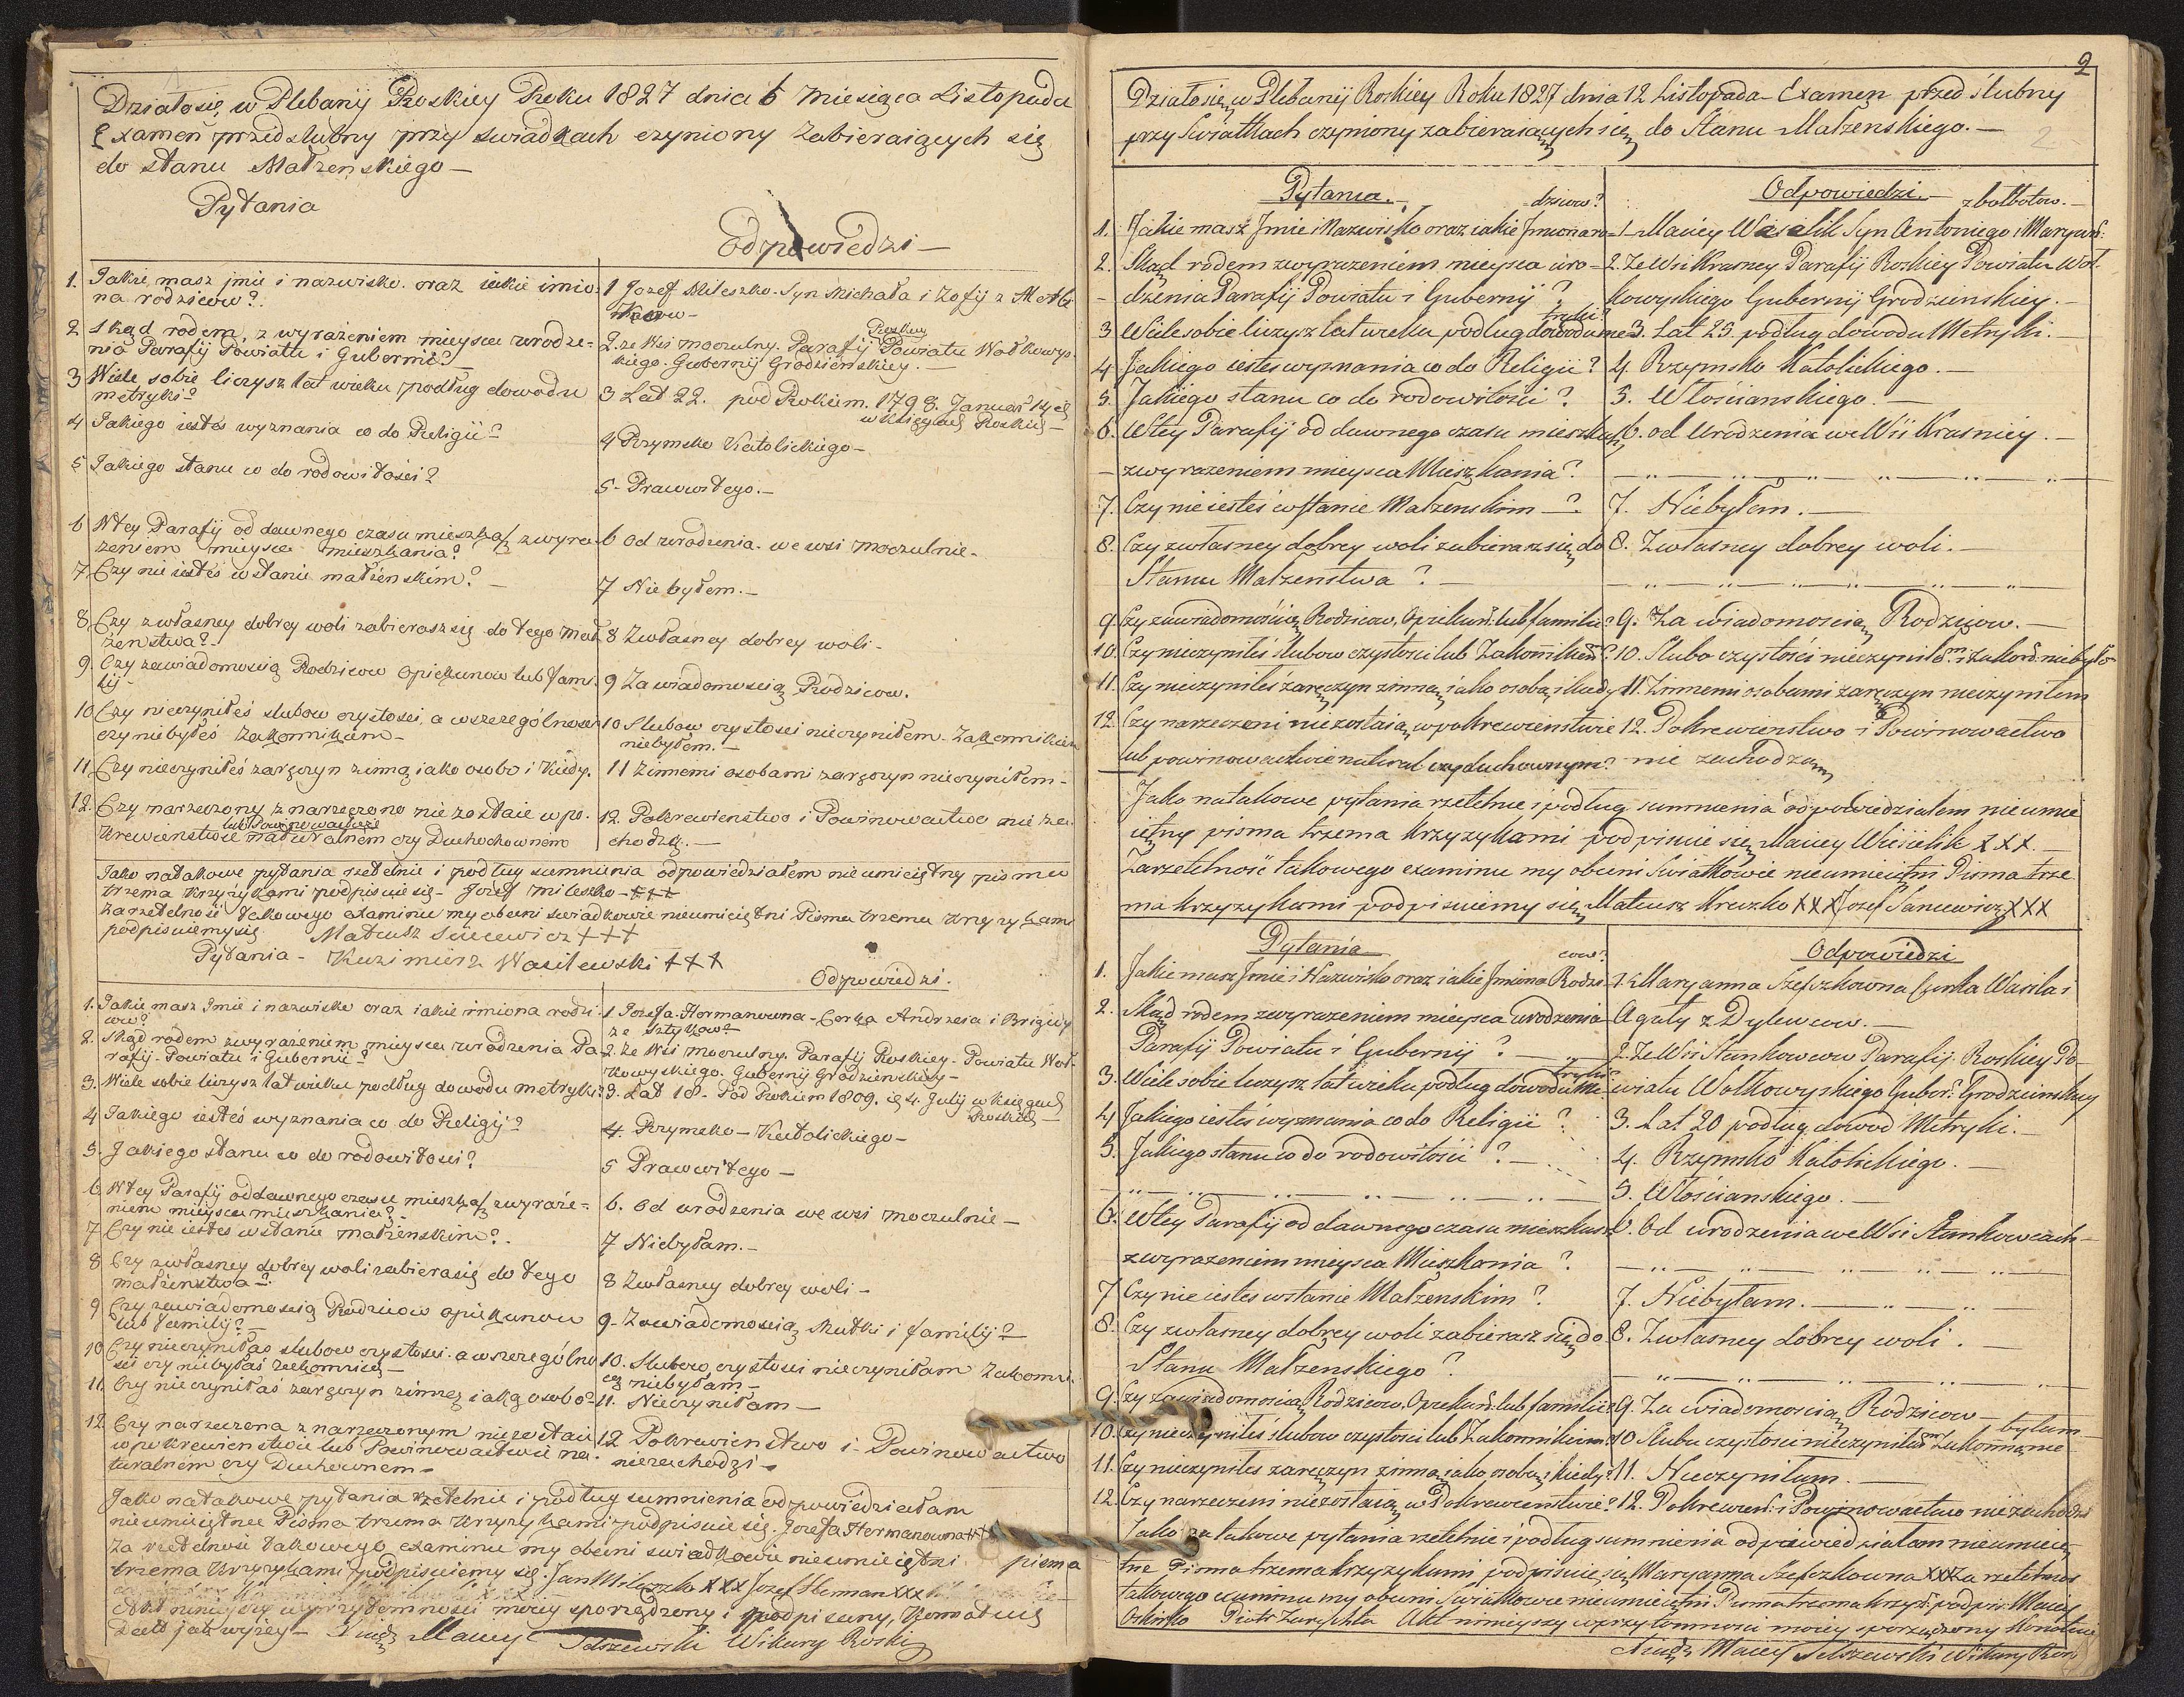 Działosię w Plebanij Roskiey Roku 1827 dnia 6 Miesiąca Listopada
Examen przedslubny przy swiadkach czyniony Zabieraiących się
do stanu Małżenskiego —
Pytania
Odpowiedzi —
1. Jakie masz jmie i nazwisko. oraz iakie imio-
na rodzicow?
1 Jozef Mileszko. Syn Michała i Zofij z
2 Skąd rodem, z wyrażeniem mieysca urodze-
nia Parafij Powiatu i Gubernii?
2. ze Wsi moczulny. Parafij Roskiey Powiatu Wołkowys-
kiego. Gubernij Grodzieńskiey. —
3 Wiele sobie liczysz lat wieku podług dowodu
metryki?
3 Lat 22. pod Rokiem. 1798. Januar 14
w Księgach Roskich —
4 Jakiego iesteś wyznania co do Religii?
4 Rzymsko Katolickiego —
5 Jakiego stanu co do rodowitości?
5 - Prawwitego. —
6 Wtey Parafij od dawnego czasu mieszkasz zwyra-
żeniem mieysca mieszkania?
6 od urodzenia. we wsi moczulnie.
7. Czy nie iesteś w stanie małżenskim? —
7 Nie byłem. —
8. Czy zwłasney dobrey woli zabierasz się do tego Mał-
żenstwa? —
8 Zwłasney dobrey woli -
9. Czy zawiadomością Rodzicow opiekunow lub fami-
lij -
9 Za wiadomoscią Rodzicow.
10 Czy nieczyniłeś slubow czystosci, a wszczególnosci
czy niebyłeś Zakonnikiem —
10 Slubow czystosci nieczyniłem. Zakonnikiem
niebyłem. —
11. Czy nieczyniłeś zaręczyn zinną iako osobo i kiedy.
11 Zinnemi osobami zaręczyn nieczyniłem -
12. Czy narzeczony z narzeczono nie zostaie w po-
krewienstwie lub Powinowactwie naturalnem czy Duchochownem
12. Pokrewienstwo i Powinowactwo nie za-
chodzą. —
Jako natakowe pytania rzetelnie i podług sumnienia odpowiedziałem nieumieiętny pisma
trzema krzyżykami podpisuie się - Jozef Mileszko - +++
Zarzetelność takowego examinu my obecni swiadkowie nieumieiętni Pisma trzema krzyżykami
podpisuiemy się Mateusz +++
Pytania - Kazimierz Wasilewski +++
Odpowiedzi.
1. Jakie masz Imie i nazwisko oraz iakie imiona rodzi-
cow?
1 Jozefa Hermanowna - Corka Andrzeia i Brigidy
ze
2. Skąd rodem zwyrażeniem mieysca urodzenia Pa-
rafij - Powiatu i Gubernii?
2. Ze Wsi moczulny. Parafij Roskiey - Powiatu Woł-
kowyskiego. Gubernij Grodzienskiey —
3. Wiele sobie liczysz lat wieku podług dowodu metryki?
3. Lat 18 - Pod Rokiem 1809. 4. Julij w księgach
Roskich —
4 Jakiego iesteś wyznania co do Religij?
4. Rzymsko — Katolickiego —
5. Jakiego stanu co do rodowitosci?
5 Prawwitego —
6 Wtey Parafij oddawnego czasu mieszkasz zwyraże-
niem mieysca mieszkania?
6. od urodzenia we wsi moczulnie —
7 Czy nie iesteś wstanie małżenskim?
7 Niebyłam. —
8 Czy zwłasney dobrey woli zabierasię do tego
małżenstwa?
8 Zwłasney dobrey woli —
9 Czy zawiadomoscią Rodzicow opiekunow
lub familij?
9 - Zawiadomoscią Matki i familij?
10 Czy nieczyniłaś slubow czystosci. a wszczególno-
sci czy niebyłaś zakonnicą —
10. Slubow czystosci nieczyniłam Zakonni-
cą niebyłam —
11. Czy nieczyniłaś zaręczyn zinną iaką osobo?
11. Nieczyniłam —
12. Czy narzeczona z narzeczonym niezostaie
w pokrewienstwie lub Powinowactwie na-
turalnem czy Duchownem —
12 Pokrewienstwo i - Powinowactwo
niezachodzi —
Jako natakowe pytania rzetelnie i podług sumnienia odpowiedziałam
nieumieiętna Pisma trzema krzyżykami podpisuie się. Jozefa Hermanowna +++
Za rzetelność takowego examinu my obecni swiadkowie nieumieiętni pisma
trzema krzyżykami podpisuiemy się. Jan Mileszko XXX Jozef Herman XXX
Akt ninieyszy wprzytomności moiey sporządzony i podpisany,
Datt jak wyżey — Xiądz Maciey Wikary Roski
2
Działosię w Plebanij Roskiey Roku 1827 dnia 12 Listopada - Examen przed slubny
przy Swiatkach czyniony zabieraiących się do Stanu Małżenskiego. —
2
Pytania. —
Odpowiedzi. —
1. Jakie masz Jmie i Nazwisko oraz iakie Jmiona ro-
dzicow?
1 - Maciey Syn Antoniego i Maryan:
z bołbotow. —
2. Skąd rodem zwyrazeniem mieysca uro-
dzenia Parafij Powiatu i Gubernij?
2. Ze Wsi Krasney Parafij Roskiey Powiatu Woł-
kowyskiego Gubernij Grodzienskiey. —
3 Wiele sobie liczysz lat wieku podług dowodu me-
tryki?
3. Lat 25. podług dowodu Metryki. —
4 Jakiego iestes wyznania co do Religii?
4. Rzymsko Katolickiego. —
5. Jakiego stanu co do rodowitosci?
5. Włoscianskiego. —
6. Wtey Parafij od dawnego czasu mieszkasz
zwyrazeniem mieysca Mieszkania?
6. od Urodzenia we Wsi Krasniey. —
7. Czy nie iesteś w stanie Małżenskim —?
7. Niebyłem. —
8. Czy zwłasney dobrey woli zabierasz się do
Stanu Małżenstwa? —
8. Zwłasney dobrey woli. —
9. Czy zawiadomością Rodzicow, Opiekun: lub familii?
9. Za wiadomoscią Rodzicow. —
10. Czy nieczyniłeś slubow czystosci lub Zakonnikiem?
10. Slubo czystości nieczyniłem i zakon: niebyło
11. Czy nieczyniłeś zaręczyn zinną iako osobą i kiedy
11. Zinnemi osobami zaręczyn nieczyniłem
12. Czy narzeczeni niezostaią w pokrewienstwie
lub powinowactwie natural. czy duchownym?
12. Pokrewienstwo i Powinowactwo
nie zachodzą
Jako natakowe pytania rzetelnie i podług sumnienia odpowiedziałem nieumie-
iętny pisma trzema krzyżykami podpisuie się Maciey XXX. —
Zarzetelność takowego examinu my obecni Swiatkowie nieumieiętni Pisma trze-
ma krzyżykami podpisuiemy się Mateusz Kreczko XXX Jozef XXX
Pytania
Odpowiedzi
1. Jakie masz Jmie i Nazwisko oraz iakie Jmiona Rodzi-
cow?
1. Maryanna Szefczkowna Corka Wasila i
Agaty z Dylewow. —
2. Skąd rodem zwyrazeniem mieysca urodzenia
Parafij Powiatu i Gubernij? —
2. Ze Wsi Stankowcow Parafij Roskiey Po-
wiatu Wołkowyskiego Guber: Grodzienskiey
3. Wiele sobie liczysz lat wieku podług dowodu Me-
tryki?
3. Lat 20 podług dowod Metryki. —
4 Jakiego iesteś wyznania co do Religii?
4. Rzymsko Katolickiego. —
5. Jakiego stanu co do rodowitości? —
5. Włościanskiego. —
6. Wtey Parafij od dawnego czasu mieszkasz
zwyrazeniem mieysca Mieszkania?
6. Od urodzenia we Wsi Stankowcach —
7 Czy nie iestes wstanie Małżenskim?
7. Niebyłam. —
8. Czy zwłasney dobrey woli zabierasz się do
Stanu Małżenskiego?
8. Zwłasney dobrey woli. —
9. Czy zawiadomoscią Rodzicow, Opiekun: lub familii?
9. Za wiadomoscią Rodzicow —
10. Czy nieczyniłeś slubow czystosci lub Zakonnikiem?
10 Slubu czystosci nieczyniłam Zakonnią nie
byłam —
11. Czy nieczyniłes zaręczyn zinną iako osobą i kiedy?
11. Nieczyniłam.
12. Czy narzeczeni niezostaią w Pokrewienstwie?
12. Pokrewień: i Powinowactwo niezachodzi
Jako na takowe pytania rzetelnie i podług sumnienia odpowiedziałam nieumieię-
tne Pisma trzema krzyżykami podpisuie się Maryanna Szefczkowna XXX Za rzetelnosc
takowego examinu my obecni Swiatkowie nieumieiętni Pisma trzema krzyż: podpis: Maciey
Piotr Akt ninieyszy wprzytomnosci moiey sporządzony
Xiądz Maciey Wikary Roski